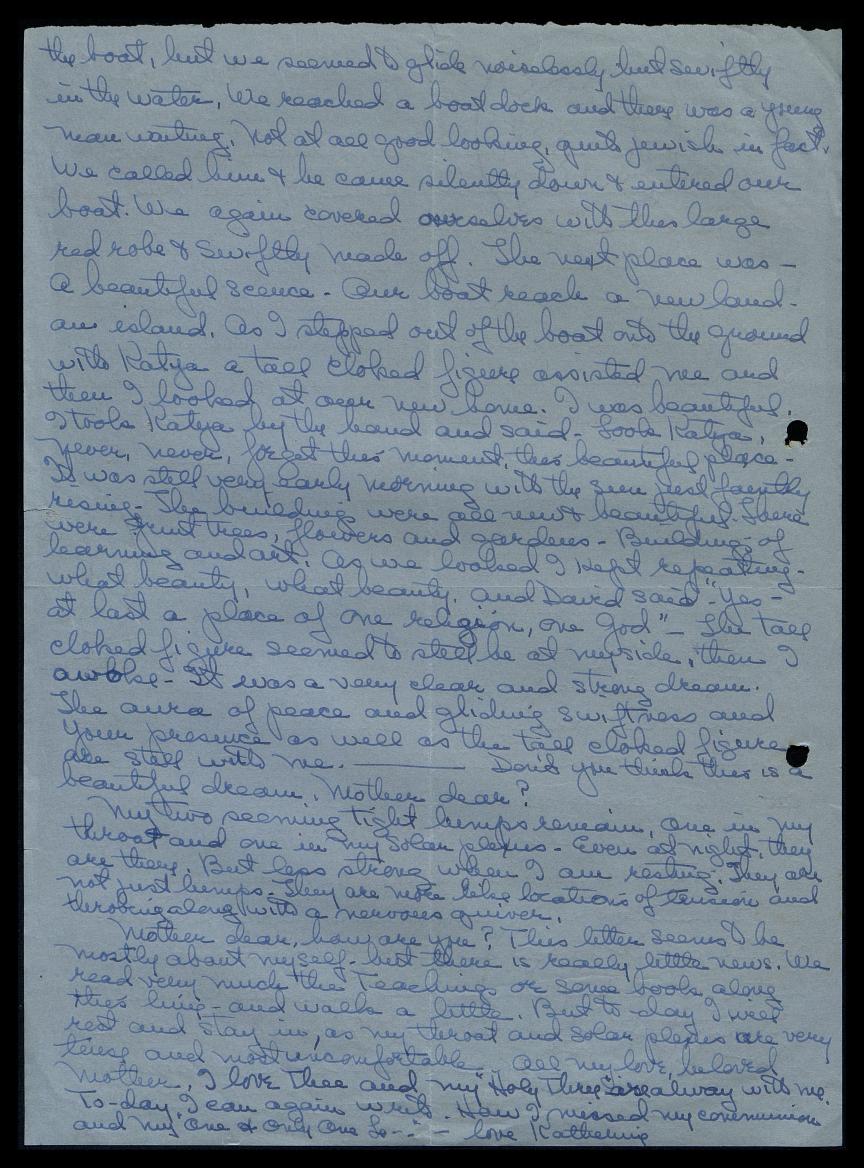 the boat, but we seemed to glide noiselessly but swiftly
in the water. We reached a boat dock and there was a young
man waiting. Not at all good looking, quite jewish in fact.
We called him & he came silently down & entered our
boat. We again covered ourselves with this large
red robe & swiftly made off. The next place was –
a beautiful scence – Our boat reach a new land –
an island. As I stepped out of the boat onto the ground
with Katya a tall cloked figure assisted me and
then I looked at our new home. I was beautiful.
I took Katya by the hand and said – Look Katya,
never, never, forget this moment, this beautiful place –
It was still very early morning with the sun just faintly
rising – The building were all new & beautiful. There
were fruit trees, flowers and gardens – Buildings of
learning and art. As we looked I kept repeating –
what beauty, what beauty, and David said "Yes –
at last a place of one religion, one God" – The tall
cloked figure seemed to still be at my side, then I
awoke – It was a very clear and strong dream.
The aura of peace and gliding swiftness and
your presence as well as the tall cloked figure
are still with me. ——— Don't you think this is a
beautiful dream, Mother dear?
My two seeming tight lumps remain, one in my
throat and one in my Solar plexus – Even at night, they
are there. But less strong when I am resting. They are
not just lumps – They are more like locations of tension and
throbing along with a nervous quiver.
Mother dear, how are you? This letter seems to be
mostly about myself – but there is really little news. We
read very much the Teachings or some book along
this line – and walk a little. But to-day I will
rest and stay in, as my throat and solar plexus are very
tense and most uncomfortable – All my love, beloved
Mother, I love Thee and my "Holy Three" are alway with me.
To-day, I can again write. How I missed my communion
and my one & only one so – – love Katherine